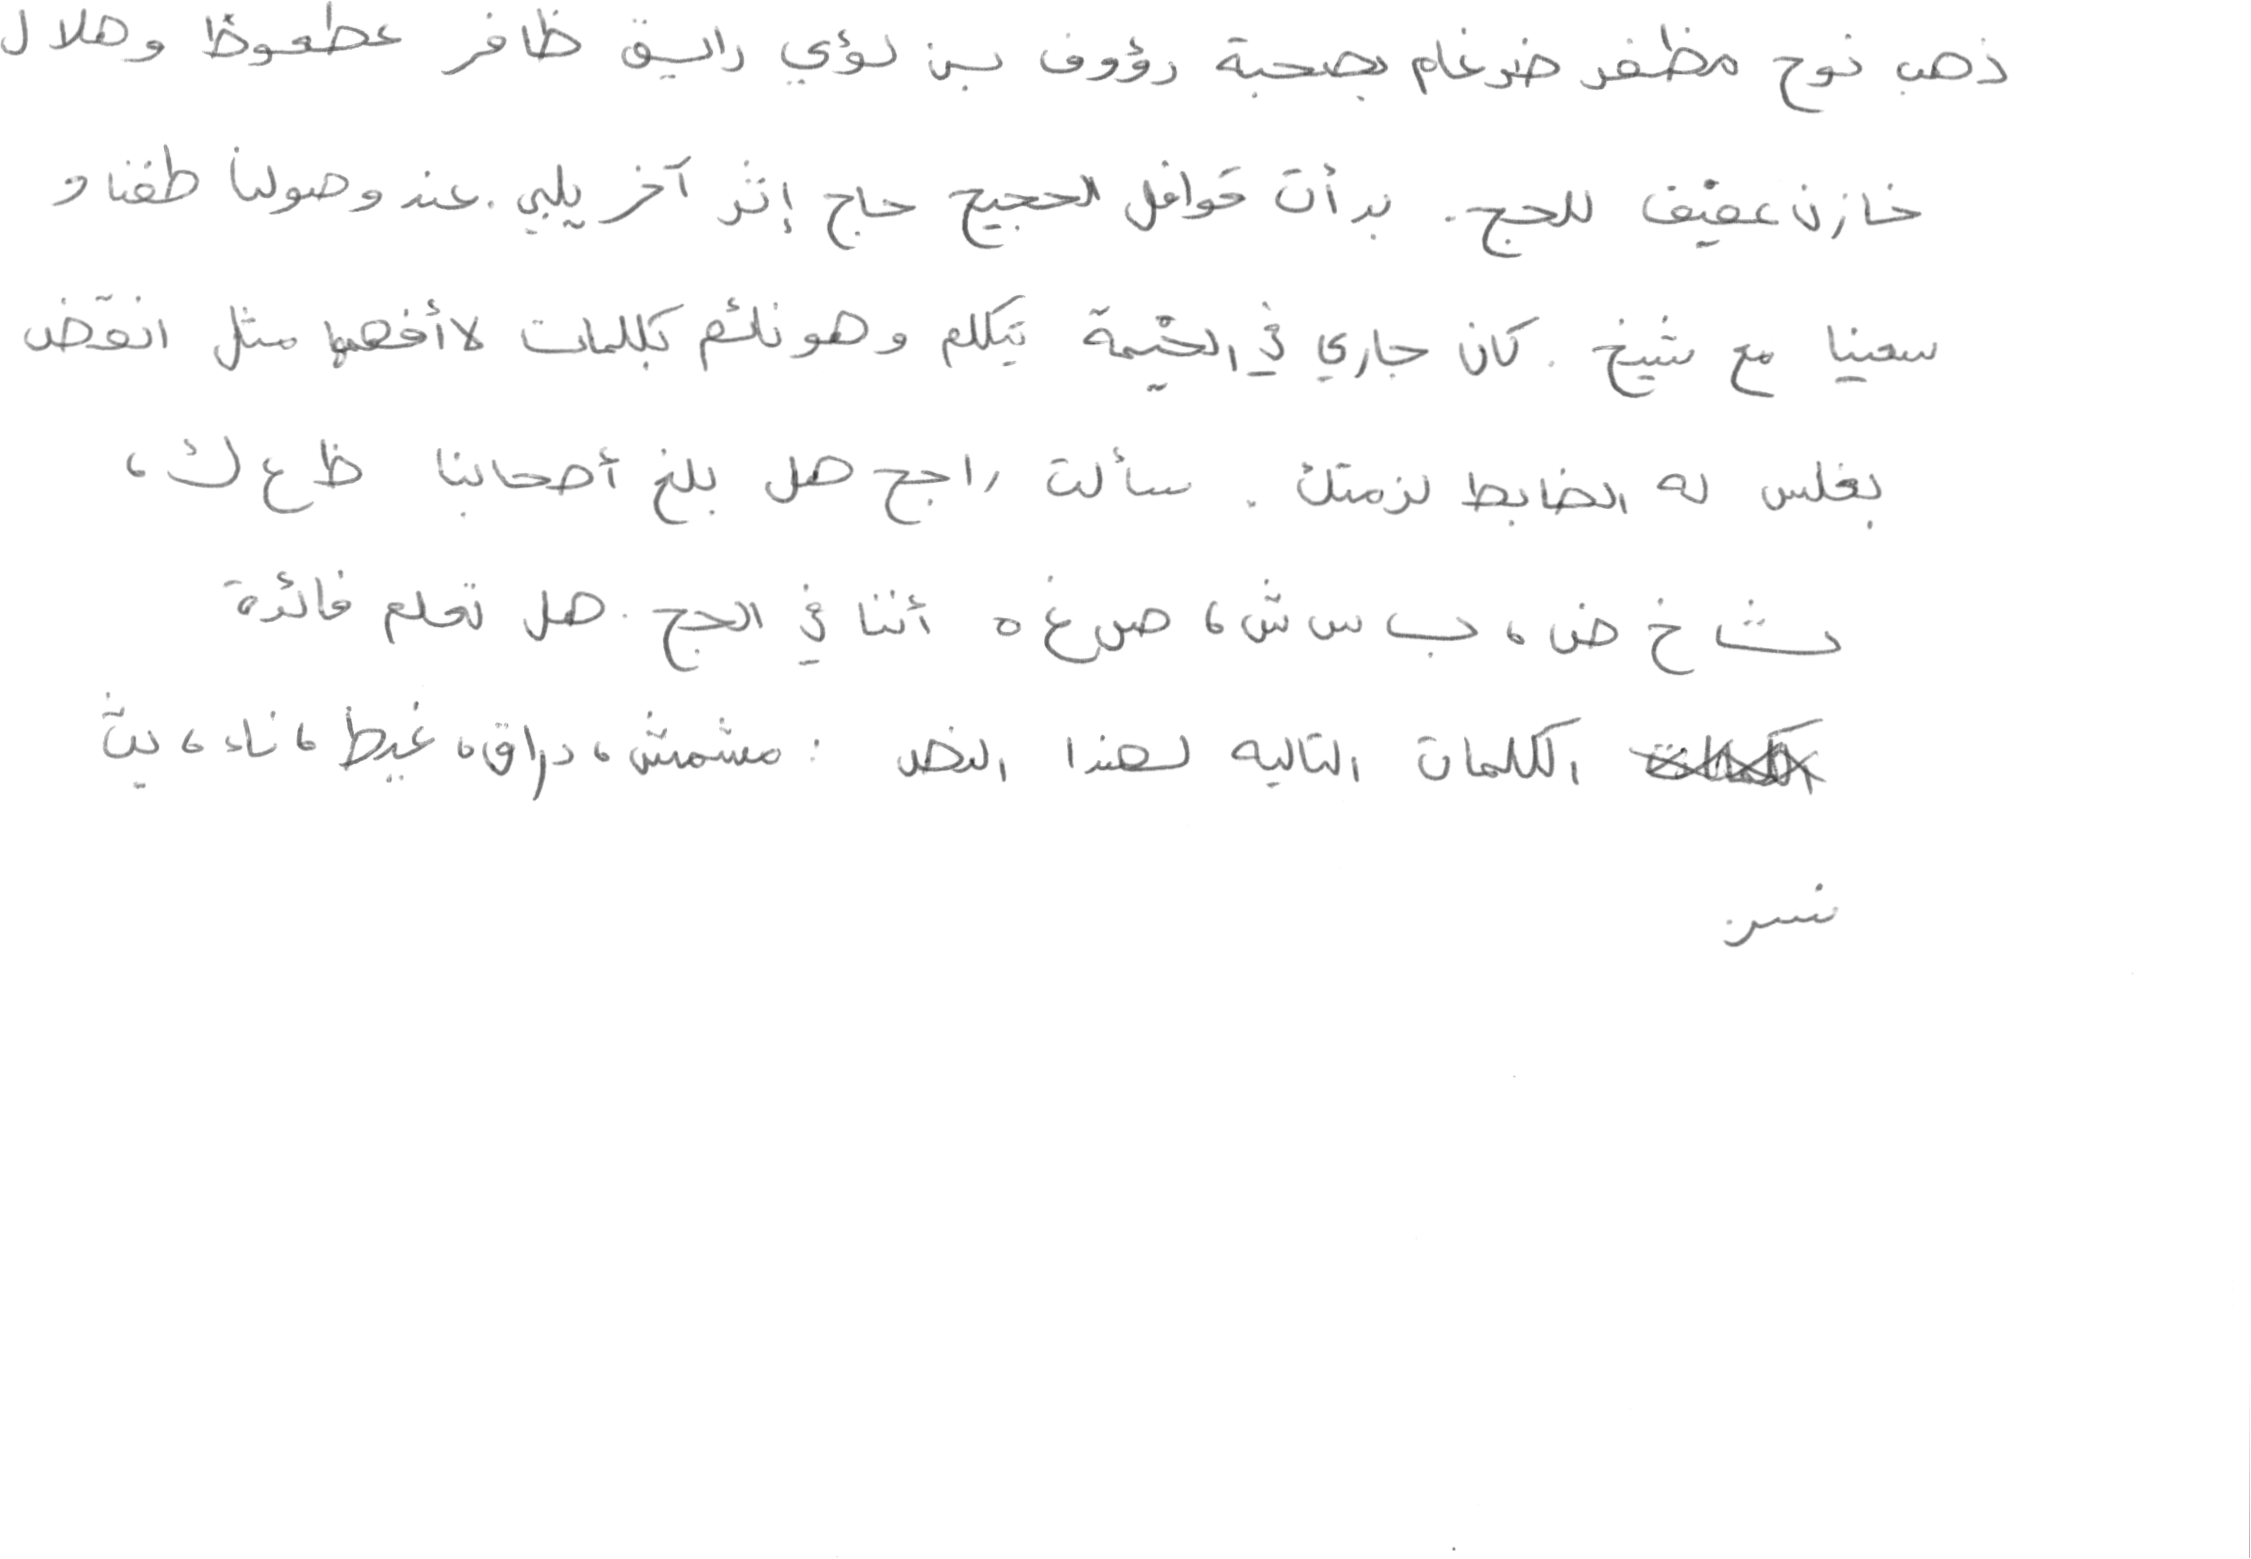 ذهب نوح مظفر ضرغام بصحبة رؤوف بن لؤي راليق ظافر عطعوظ وهلال
خازن عفيف للحج. بدأت قوافل الحجيج حاج إثر آخر يلبي. عند وصولنا طفنا و
سعينا مع شيخ. كان جاري في الخيمة يتكلم وهو نائم بكلمات لا أفهمها مثل انقض
بغلس له الضابط لزمتك. سألت راجح هل بلغ أصحابنا ظ ع ك،
ث خ ض، ب س ش، ص غ ه أننا في الحج. هل تعلم فائدة
الكلمات التاليه لهذا النص: مشمش، دراق، غيظ، ناء، يئن
نسر